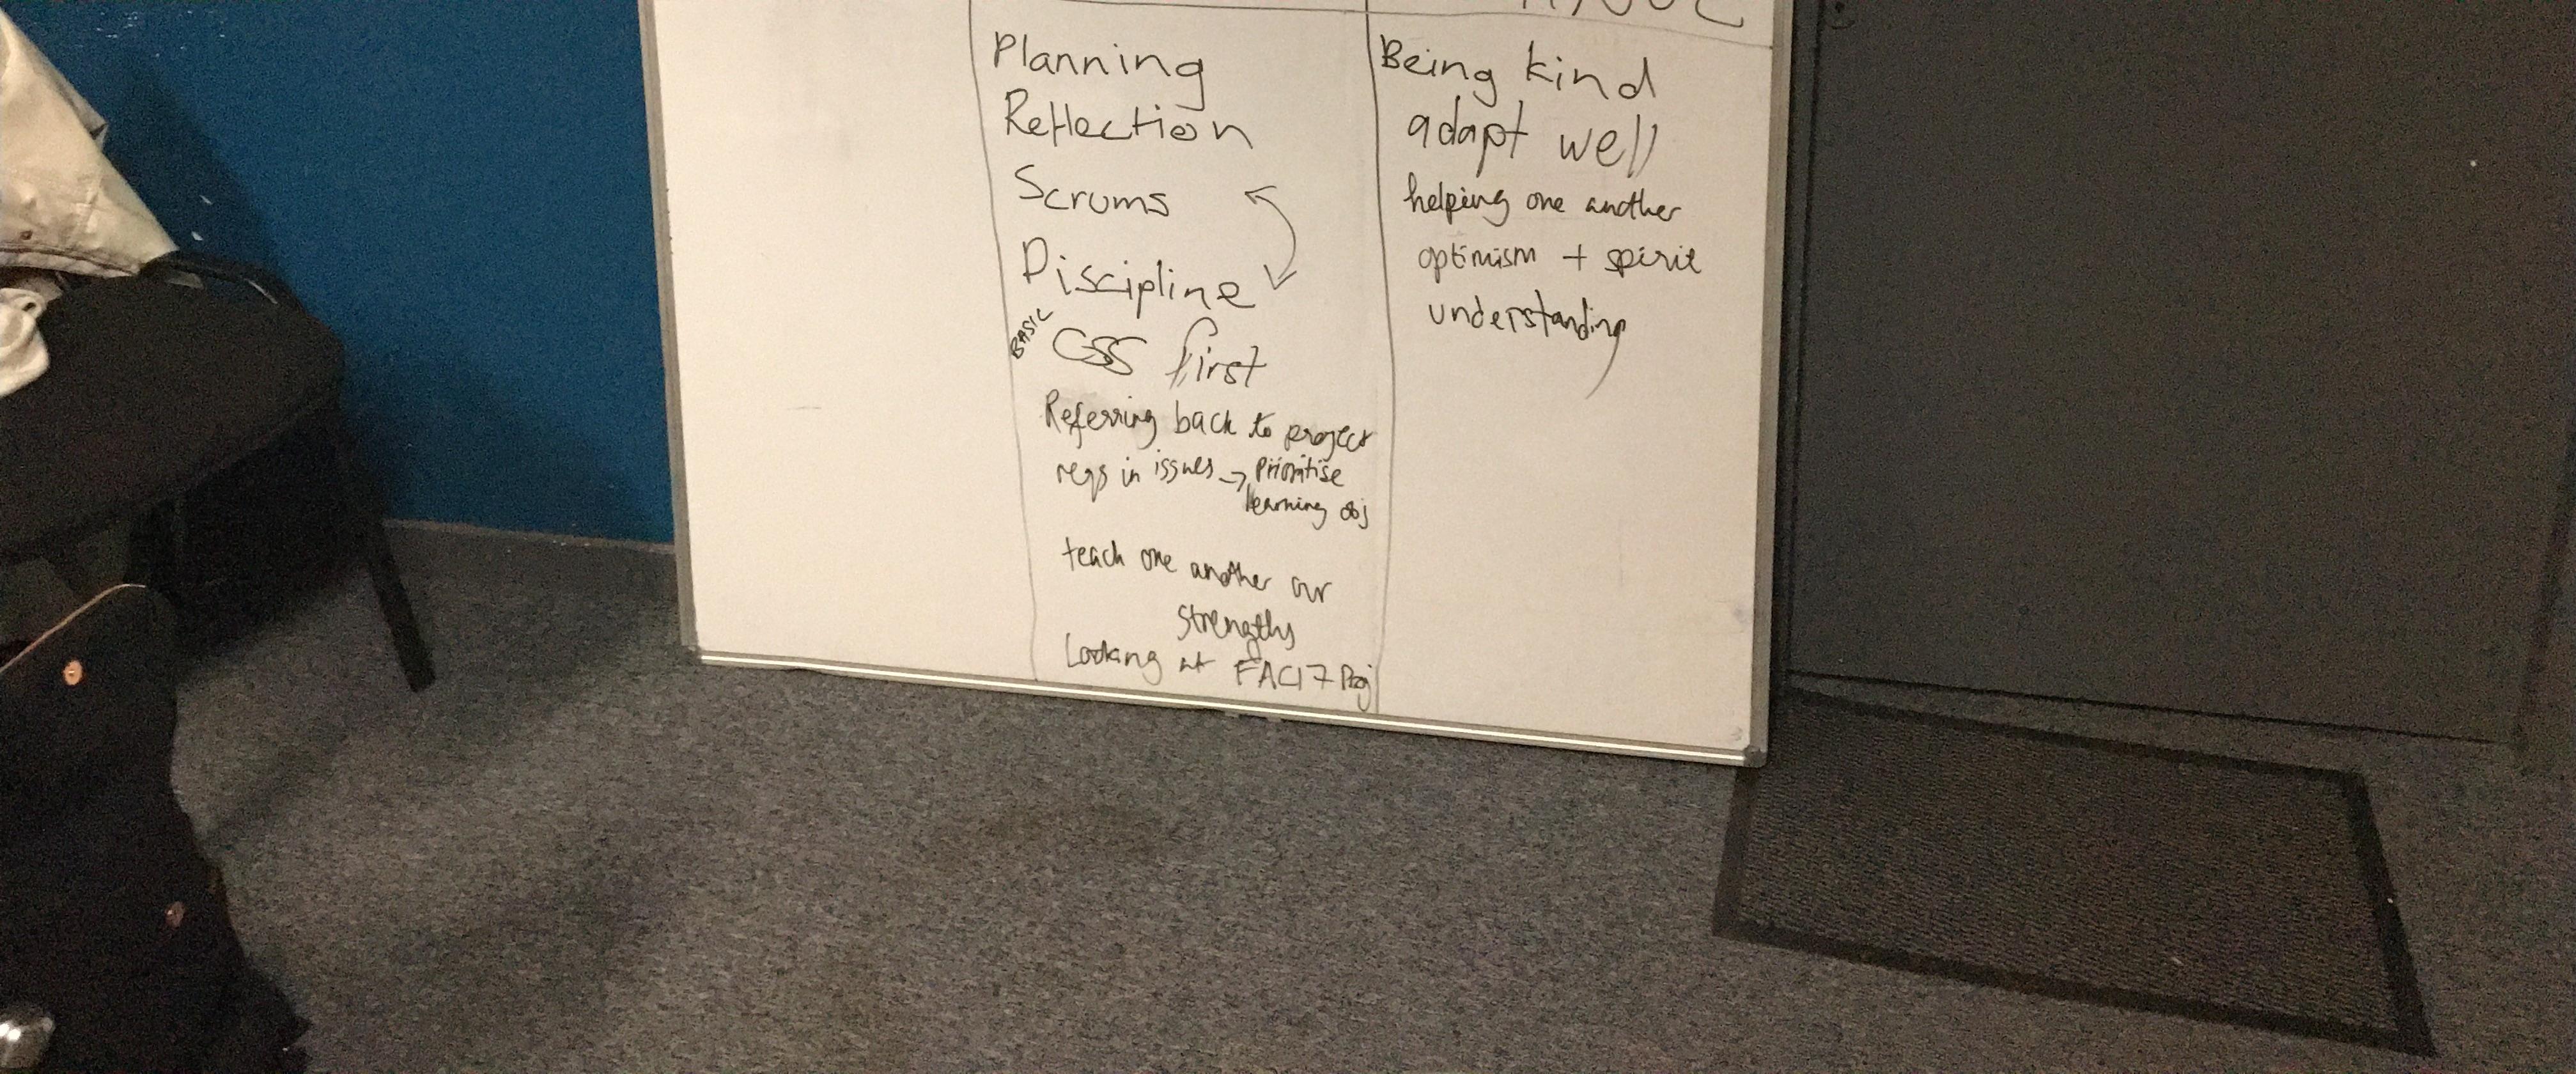 Planning
Reflection
Scrums
Discipline
BASIC CSS first
Referring back to project
reqs in issues → Prioritise
learning obj
teach one another our
strengths
Looking at FAC17 Proj
Being kind
adapt well
helping one another
optimism + spirit
understanding